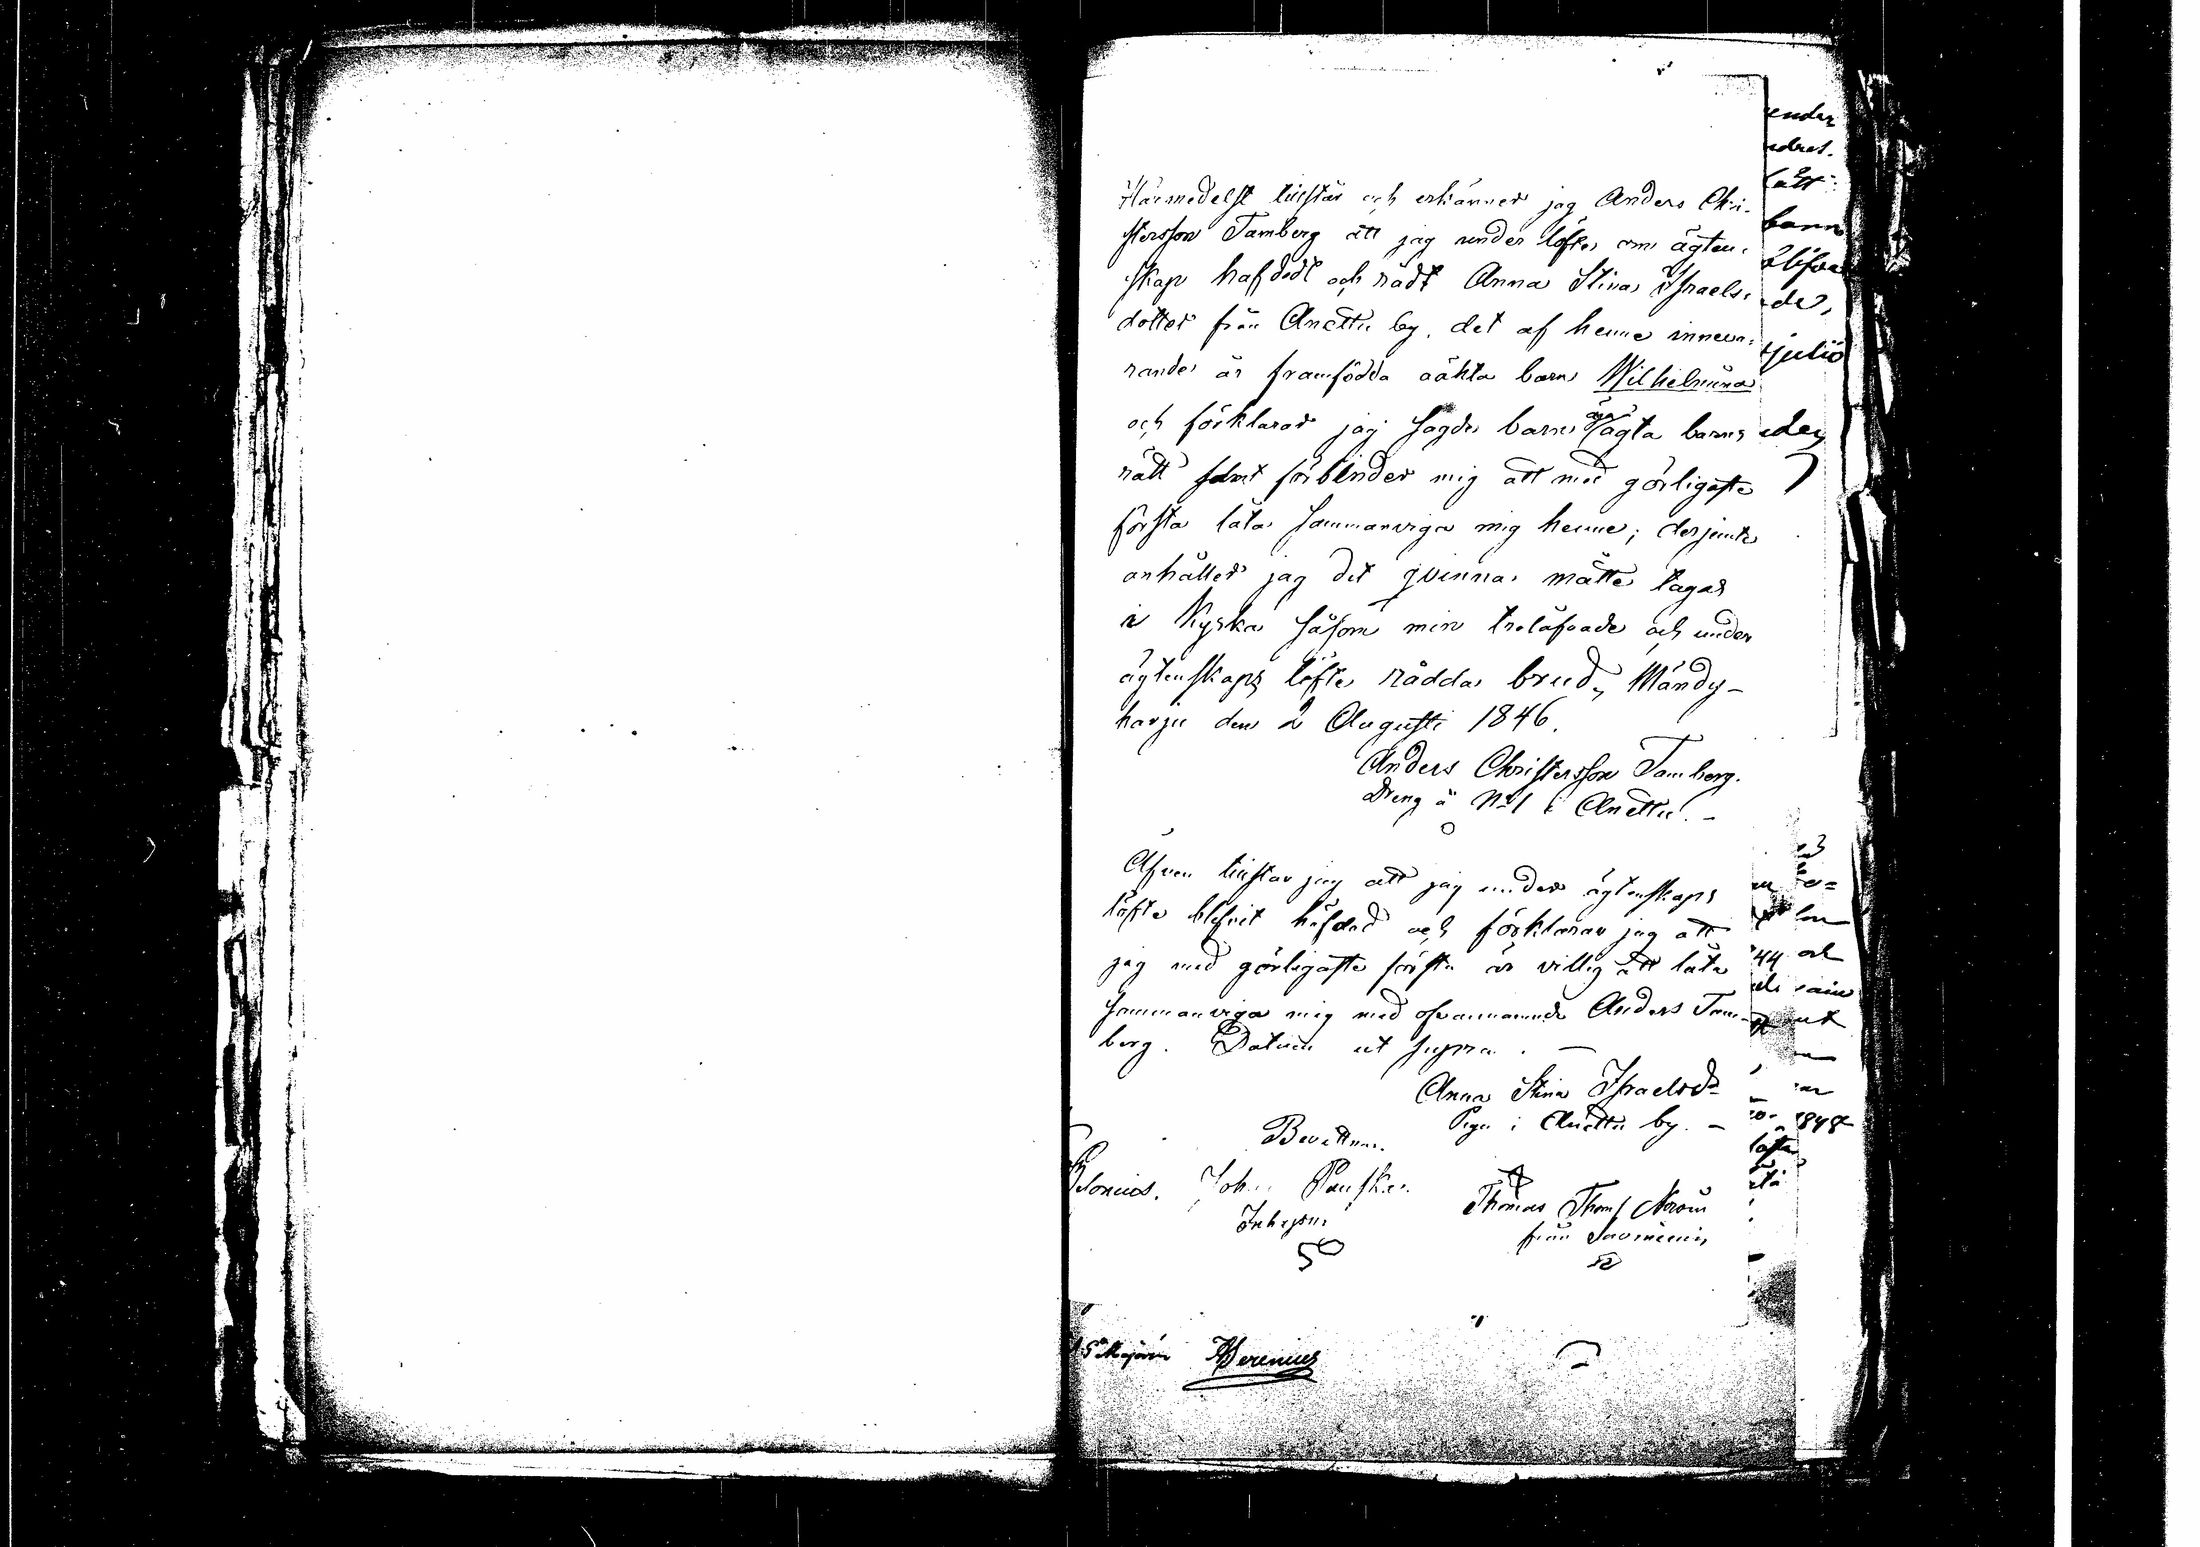 Härmedelst tillstår och erkänner jag Anders Chri-
stersson Tamberg att jag under löfte om ägten-
skap häfdadt och rådt Anna Stina Israels-
dotter från Anettu by, det af henne inneva-
rande år framfödda oäkta barn Wilhelmina
och förklarar jag sagde barn äga ägta barns
rätt samt förbinder mig att med görligaste
första låta sammanviga mig henne; derjemte
anhåller jag det qvinnan måtte tagas
i Kyrka såsom min trolofvade och under
ägtenskaps löfte rådda brud, Mändy-
harju den 2 Augusti 1846.
Anders Christersson Tamberg.
Dreng å No 1 i Anettu. -
Äfven tillstår jag att jag under ägtenskaps
löfte blifvit häfdad och förklarar jag att
jag med görligaste första är villig att låta
sammanviga mig med ofvannämnde Anders Tam-
berg. Datum ut supra. -
Anna Stina Israelsdr
Piga i Anettu by. -
Bevittna.
Johan
Thomas Thoms
från
under
rätt
barn
de,
den
44 och
1848